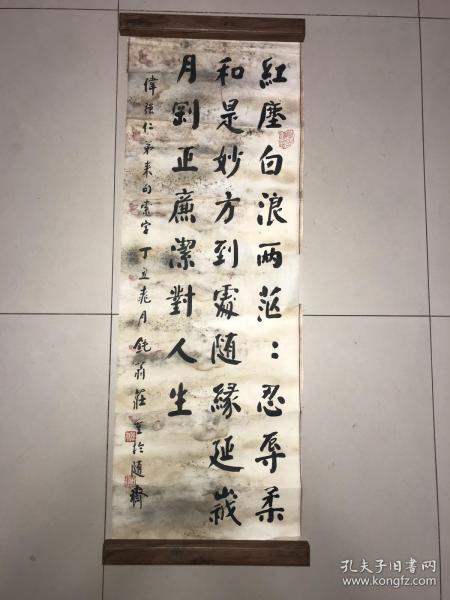 紅塵白浪两茫：忍辱柔
和是妙方到處随緣延歲
月剛正廉潔對人生
偉强仁弟来句索字 丁丑桃月 鈍翁莊重於随齋
孔夫子旧书网
www.kongfz.com